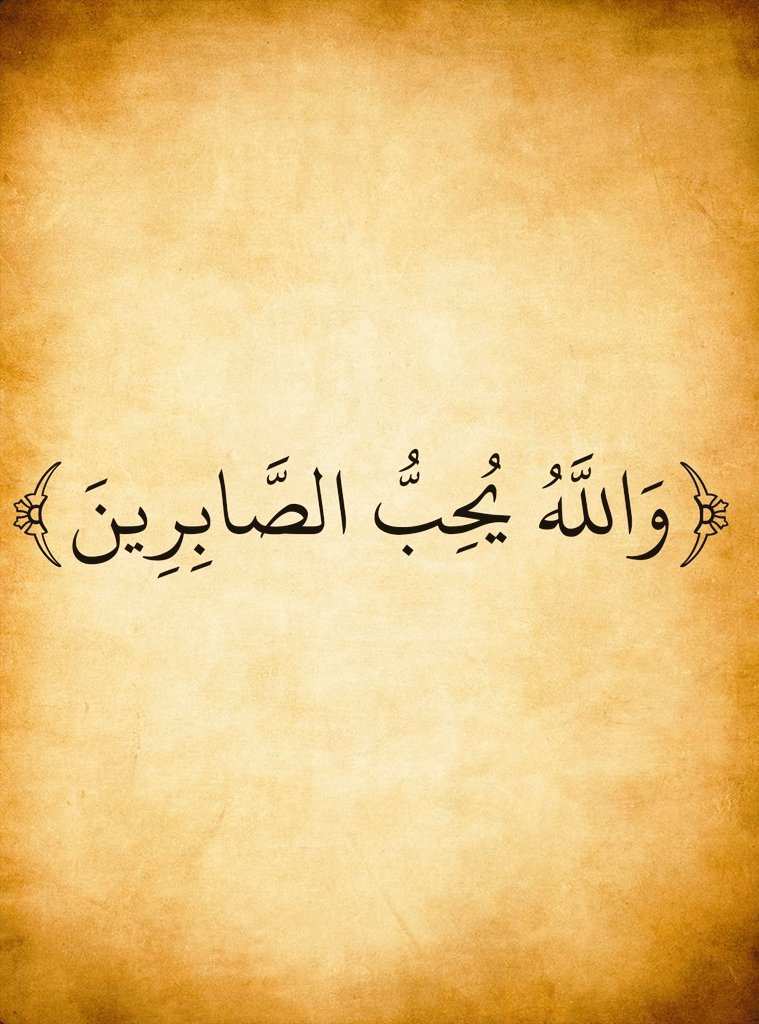 ﴿وَاللَّهُ يُحِبُّ الصَّابِرِينَ﴾